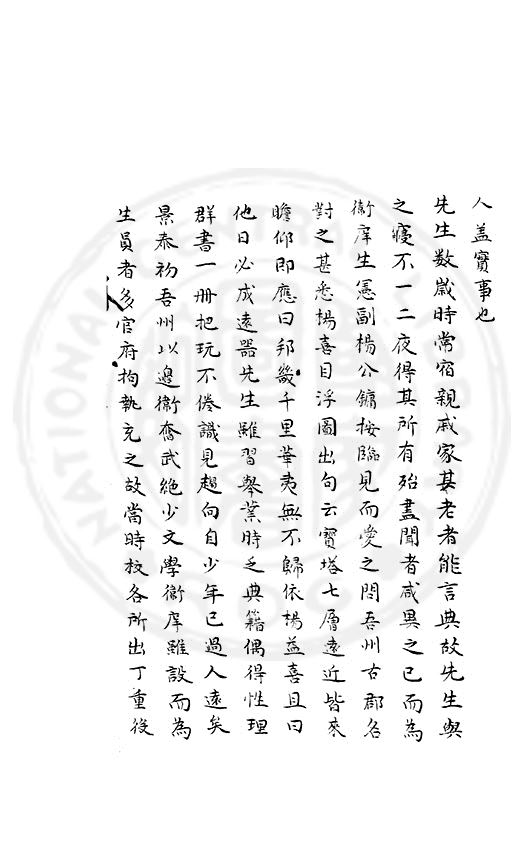 人盖實事也
先生數歲時常宿親戚家甚老者能言典故先生與
之寢不一二夜得其所有殆盡聞者咸異之已而為
衛庠生憲副楊公鏞按臨見而愛之問吾州古郡名
對之甚悉楊喜目浮圖出句云寳塔七層遠近皆來
瞻仰即應曰邦畿千里華夷無不歸依楊益喜且曰
他日必成遠器先生雖習舉業時乏典籍偶得性理
群書一册把玩不倦識見趨向自少年已過人遠矣
景泰初吾州以邊衛奮武絶少文學衛庠雖設而為
生員者多官府拘執充之故當時校各所出丁重役